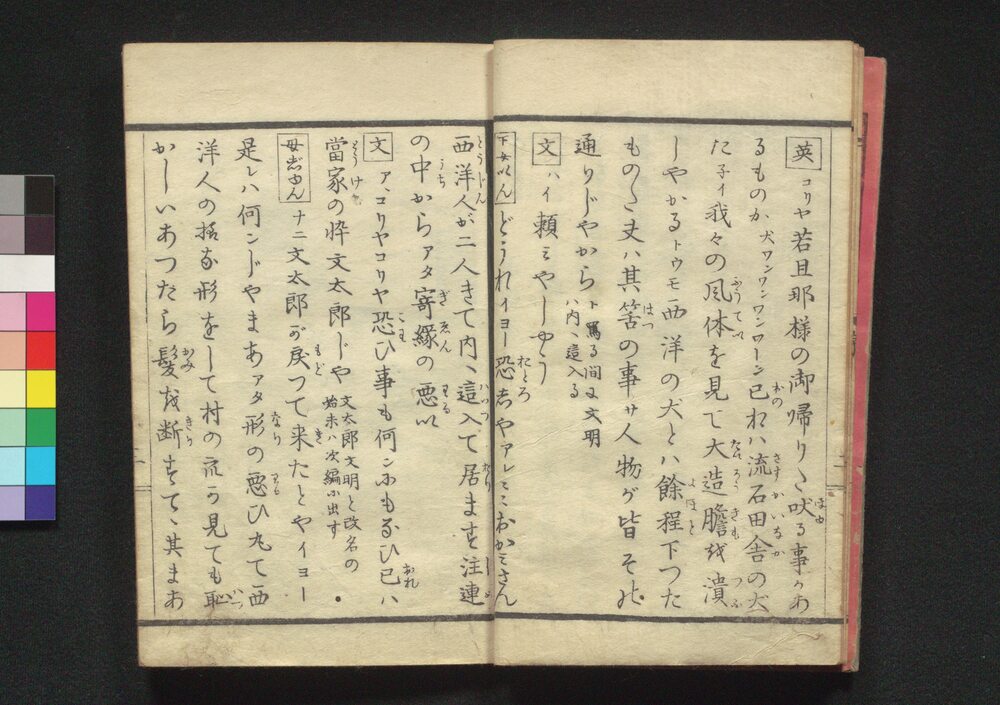 英 コリヤ若旦那様の御帰りを吠る事があ
るものか犬ワンワンワンワーン己れハ流石田舎の犬
た子イ我々の風体を見て大造膽を潰
しやがるトウモ西洋の犬とハ餘程下つた
ものだ夫ハ其筈の事サ人物が皆その
通りじやから ト罵る間に文明ハ内へ這入る
文 ハイ頼ミやしやう
下女りん どうれイヨー恐しやアレミミおかミさん
西洋人が二人きて内へ這入て居ます注連
の中からアタ寄縁の悪い
文 アヽコリヤコリヤ恐ひ事も何ンにもなひ己ハ
當家の忰文太郎じや 文太郎文明と改名の始末ハ次編に出す
母おゆん ナニ文太郎が戻つて来たとやイヨー
是レハ何ンじやまあアタ形の悪ひ丸て西
洋人の様な形をして村の衆が見ても恥
かしいあつたら髪を断すてヽ其まあ